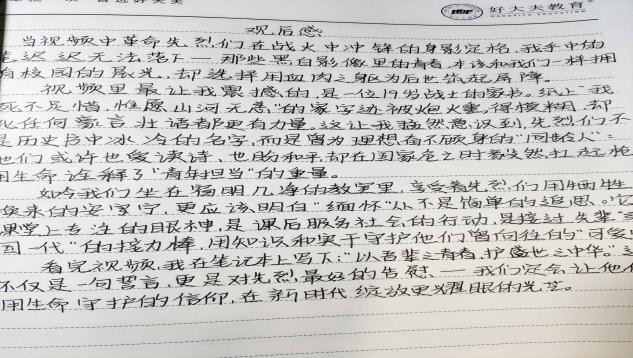 好大夫教育
观后感
当视频中革命先烈们在战火中冲锋的身影定格,我手中的
笔迟迟无法落下——那些黑白影像里的青春,本该和我们一样拥
有校园的晨光,却选择用血肉之躯为后世筑起屏障。
视频里最让我震撼的,是一位19岁战士的家书。纸上"我
死不足惜,惟愿山河无恙"的家字迹被炮火熏得模糊,却
比任何豪言壮语都更有力量。这让我猛然意识到,先烈们不
是历史书中冰冷的名字,而是曾为理想奋不顾身的"同龄人":
他们或许也爱读诗、也盼和平,却在国家危亡之时毅然扛起枪,
用生命诠释了"青年担当"的重量。
如今我们坐在窗明几净的教室里,享受着先烈们用牺牲
换来的安宁,更应该明白"缅怀"从不是简单的追思。它
课堂上专注的眼神,是课后服务社会的行动,是接过先辈"
一代"的接力棒,用知识和实干守护他们曾向往的"可爱
看完视频,我在笔记本上写下:"以吾辈之青春,护盛世之中华。"
不仅是一句誓言,更是对先烈最好的告慰——我们定会让他们
用生命守护的信仰,在新时代绽放更耀眼的光芒。